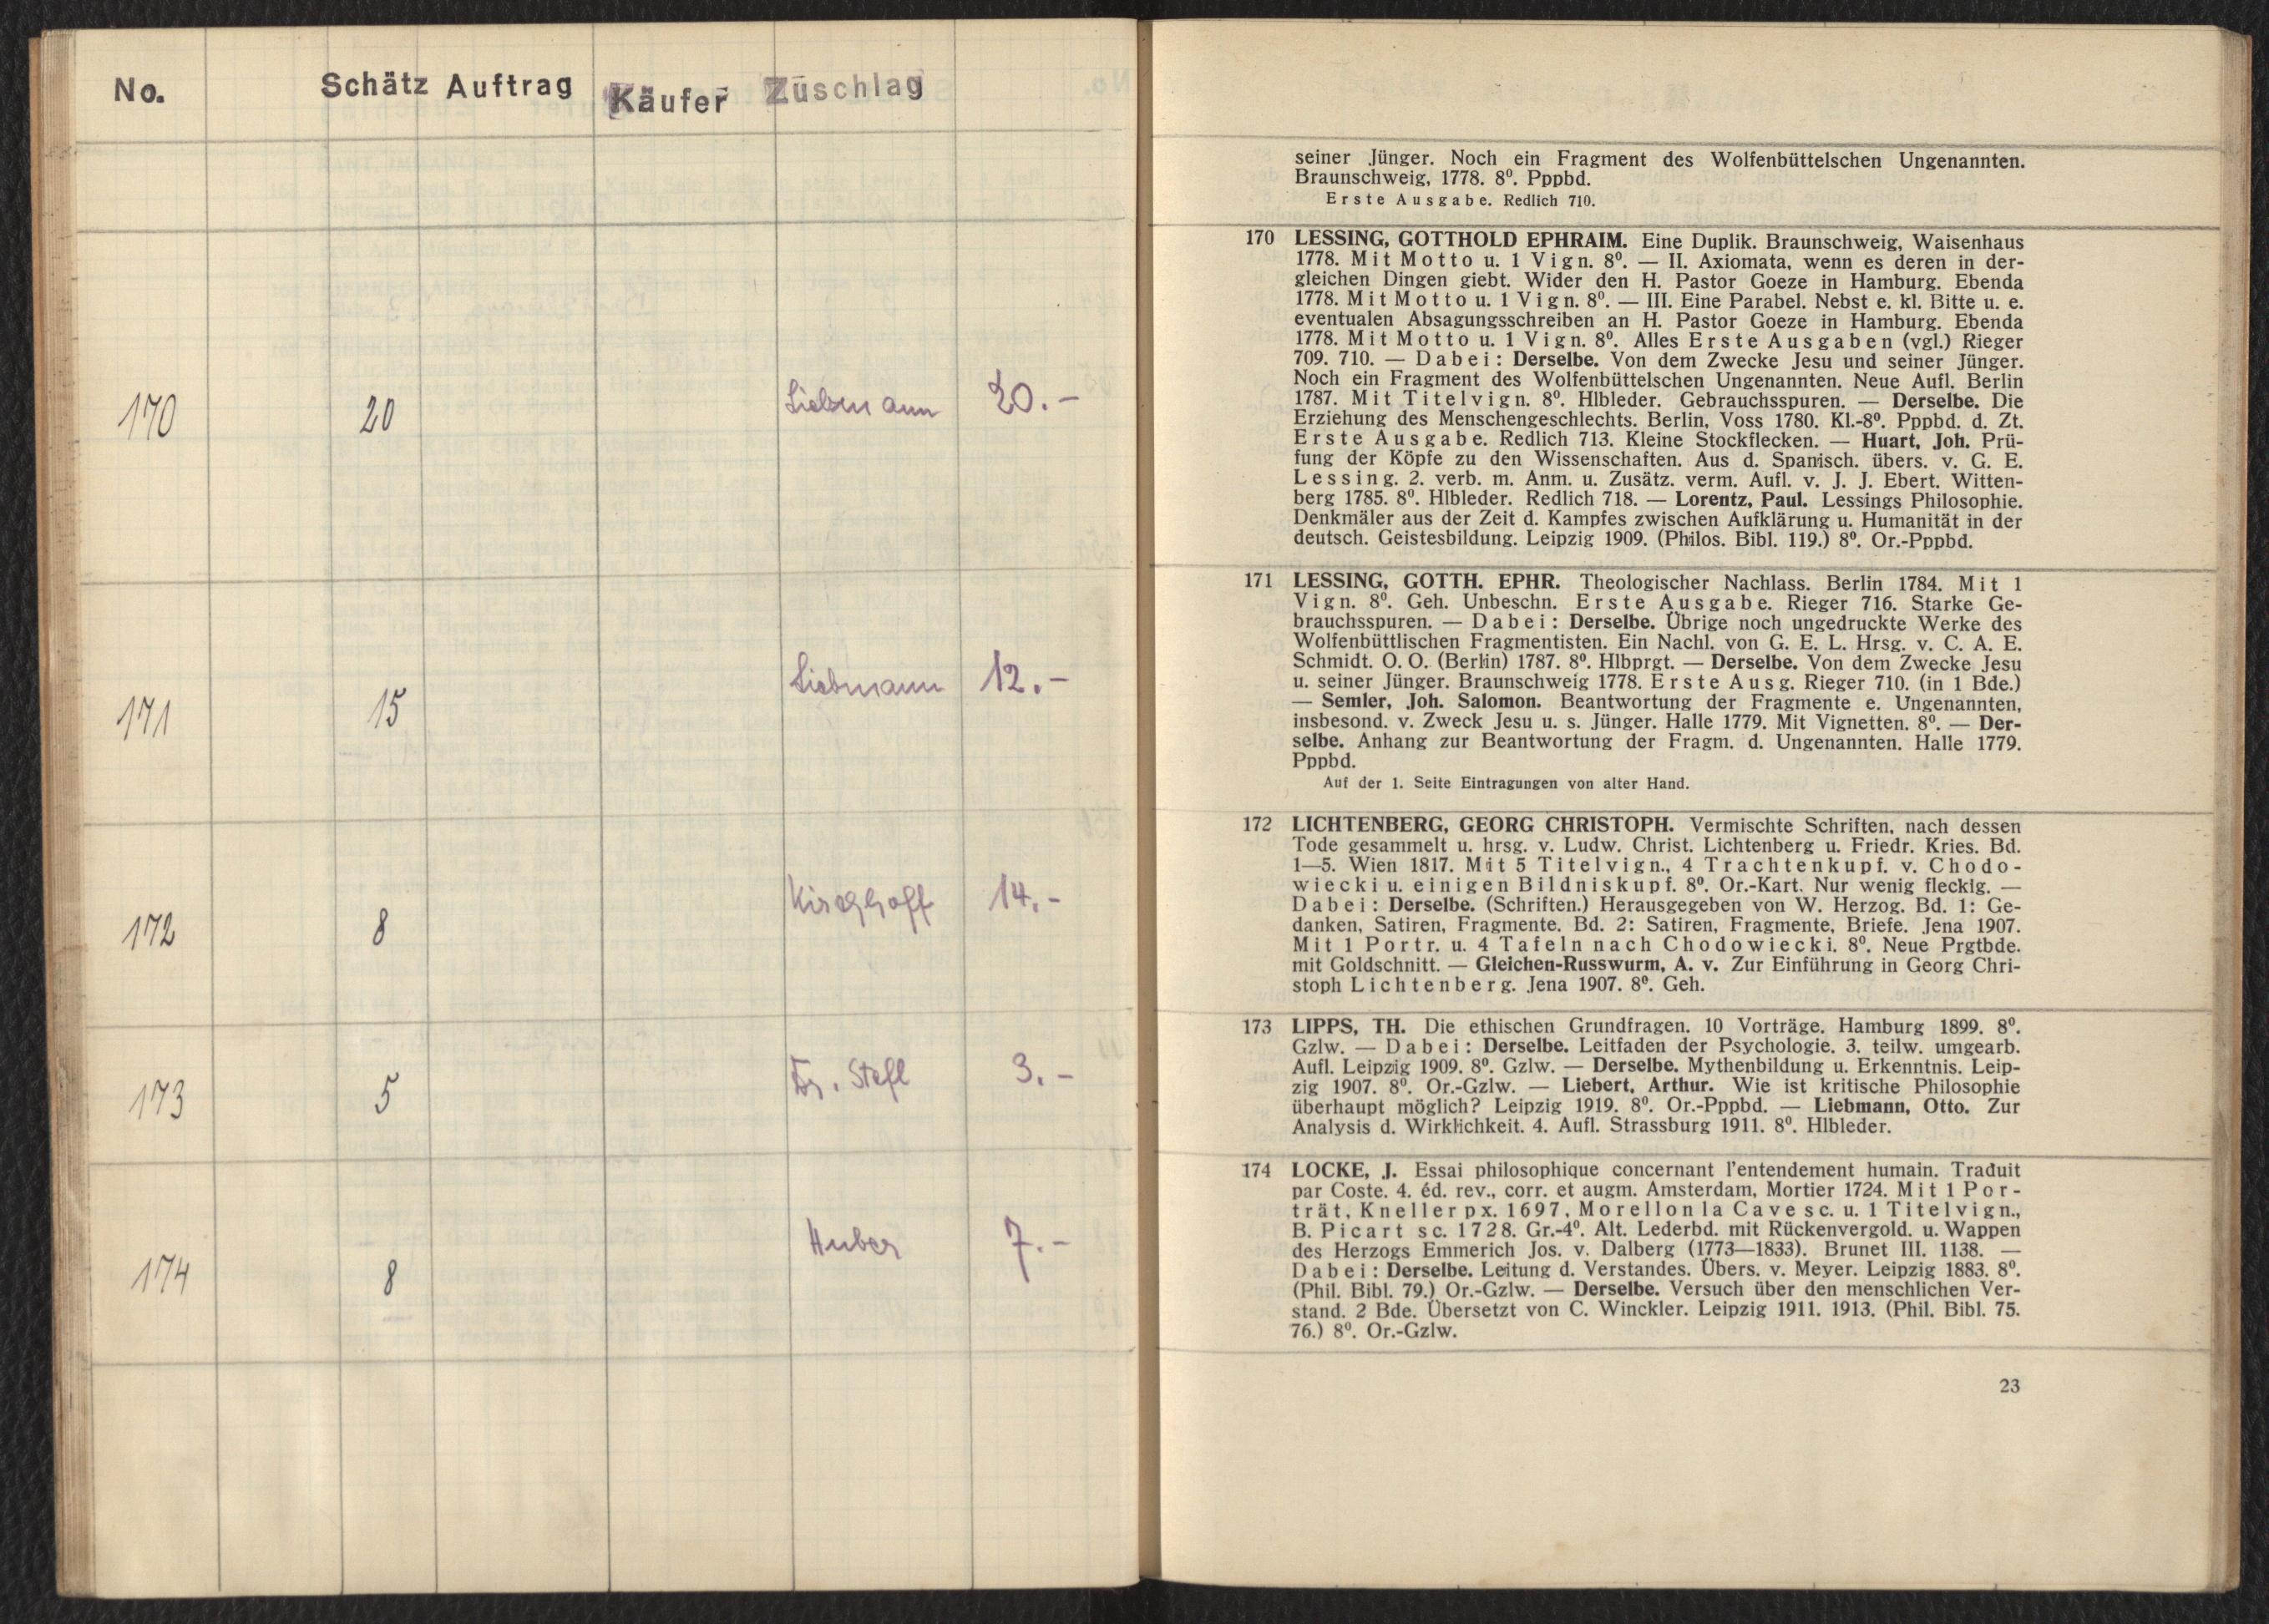 No. Schätz Auftrag Käufer Zuschlag
170 20 Liebmann 20.-
171 15 Liebmann 12.-
172 8 Kirchhoff 14.-
173 5 Dr. Stefl 3.-
174 8 Huber 7.-
seiner Jünger. Noch ein Fragment des Wolfenbüttelschen Ungenannten.
Braunschweig, 1778. 8⁰. Pppbd.
Erste Ausgabe. Redlich 710.
170 LESSING, GOTTHOLD EPHRAIM. Eine Duplik. Braunschweig, Waisenhaus
1778. Mit Motto u. 1 Vign. 8⁰. — II. Axiomata, wenn es deren in der-
gleichen Dingen giebt. Wider den H. Pastor Goeze in Hamburg. Ebenda
1778. Mit Motto u. 1 Vign. 8⁰. — III. Eine Parabel. Nebst e. kl. Bitte u. e.
eventualen Absagungsschreiben an H. Pastor Goeze in Hamburg. Ebenda
1778. Mit Motto u. 1 Vign. 8⁰. Alles Erste Ausgaben (vgl.) Rieger
709. 710. — Dabei: Derselbe. Von dem Zwecke Jesu und seiner Jünger.
Noch ein Fragment des Wolfenbüttelschen Ungenannten. Neue Aufl. Berlin
1787. Mit Titelvign. 8⁰. Hlbleder. Gebrauchsspuren. — Derselbe. Die
Erziehung des Menschengeschlechts. Berlin, Voss 1780. Kl.-8⁰. Pppbd. d. Zt.
Erste Ausgabe. Redlich 713. Kleine Stockflecken. — Huart, Joh. Prü-
fung der Köpfe zu den Wissenschaften. Aus d. Spanisch. übers. v. G. E.
Lessing. 2. verb. m. Anm. u. Zusätz. verm. Aufl. v. J. J. Ebert. Witten-
berg 1785. 8⁰. Hlbleder. Redlich 718. — Lorentz, Paul. Lessings Philosophie.
Denkmäler aus der Zeit d. Kampfes zwischen Aufklärung u. Humanität in der
deutsch. Geistesbildung. Leipzig 1909. (Philos. Bibl. 119.) 8⁰. Or.-Pppbd.
171 LESSING, GOTTH. EPHR. Theologischer Nachlass. Berlin 1784. Mit 1
Vign. 8⁰. Geh. Unbeschn. Erste Ausgabe. Rieger 716. Starke Ge-
brauchsspuren. — Dabei: Derselbe. Übrige noch ungedruckte Werke des
Wolfenbüttlischen Fragmentisten. Ein Nachl. von G. E. L. Hrsg. v. C. A. E.
Schmidt. O. O. (Berlin) 1787. 8⁰. Hlbprgt. — Derselbe. Von dem Zwecke Jesu
u. seiner Jünger. Braunschweig 1778. Erste Ausg. Rieger 710. (in 1 Bde.)
— Semler, Joh. Salomon. Beantwortung der Fragmente e. Ungenannten,
insbesond. v. Zweck Jesu u. s. Jünger. Halle 1779. Mit Vignetten. 8⁰. — Der-
selbe. Anhang zur Beantwortung der Fragm. d. Ungenannten. Halle 1779.
Pppbd.
Auf der 1. Seite Eintragungen von alter Hand.
172 LICHTENBERG, GEORG CHRISTOPH. Vermischte Schriften, nach dessen
Tode gesammelt u. hrsg. v. Ludw. Christ. Lichtenberg u. Friedr. Kries. Bd.
1—5. Wien 1817. Mit 5 Titelvign., 4 Trachtenkupf. v. Chodo-
wiecki u. einigen Bildniskupf. 8⁰. Or.-Kart. Nur wenig fleckig. —
Dabei: Derselbe. (Schriften.) Herausgegeben von W. Herzog. Bd. 1: Ge-
danken, Satiren, Fragmente. Bd. 2: Satiren, Fragmente, Briefe. Jena 1907.
Mit 1 Portr. u. 4 Tafeln nach Chodowiecki. 8⁰. Neue Prgtbde.
mit Goldschnitt. — Gleichen-Russwurm, A. v. Zur Einführung in Georg Chri-
stoph Lichtenberg. Jena 1907. 8⁰. Geh.
173 LIPPS, TH. Die ethischen Grundfragen. 10 Vorträge. Hamburg 1899. 8⁰.
Gzlw. — Dabei: Derselbe. Leitfaden der Psychologie. 3. teilw. umgearb.
Aufl. Leipzig 1909. 8⁰. Gzlw. — Derselbe. Mythenbildung u. Erkenntnis. Leip-
zig 1907. 8⁰. Or.-Gzlw. — Liebert, Arthur. Wie ist kritische Philosophie
überhaupt möglich? Leipzig 1919. 8⁰. Or.-Pppbd. — Liebmann, Otto. Zur
Analysis d. Wirklichkeit. 4. Aufl. Strassburg 1911. 8⁰. Hlbleder.
174 LOCKE, J. Essai philosophique concernant l'entendement humain. Traduit
par Coste. 4. éd. rev., corr. et augm. Amsterdam, Mortier 1724. Mit 1 Por-
trät, Kneller px. 1697, Morellon la Cave sc. u. 1 Titelvign.,
B. Picart sc. 1728. Gr.-4⁰. Alt. Lederbd. mit Rückenvergold. u. Wappen
des Herzogs Emmerich Jos. v. Dalberg (1773—1833). Brunet III. 1138. —
Dabei: Derselbe. Leitung d. Verstandes. Übers. v. Meyer. Leipzig 1883. 8⁰.
(Phil. Bibl. 79.) Or.-Gzlw. — Derselbe. Versuch über den menschlichen Ver-
stand. 2 Bde. Übersetzt von C. Winckler. Leipzig 1911. 1913. (Phil. Bibl. 75.
76.) 8⁰. Or.-Gzlw.
23